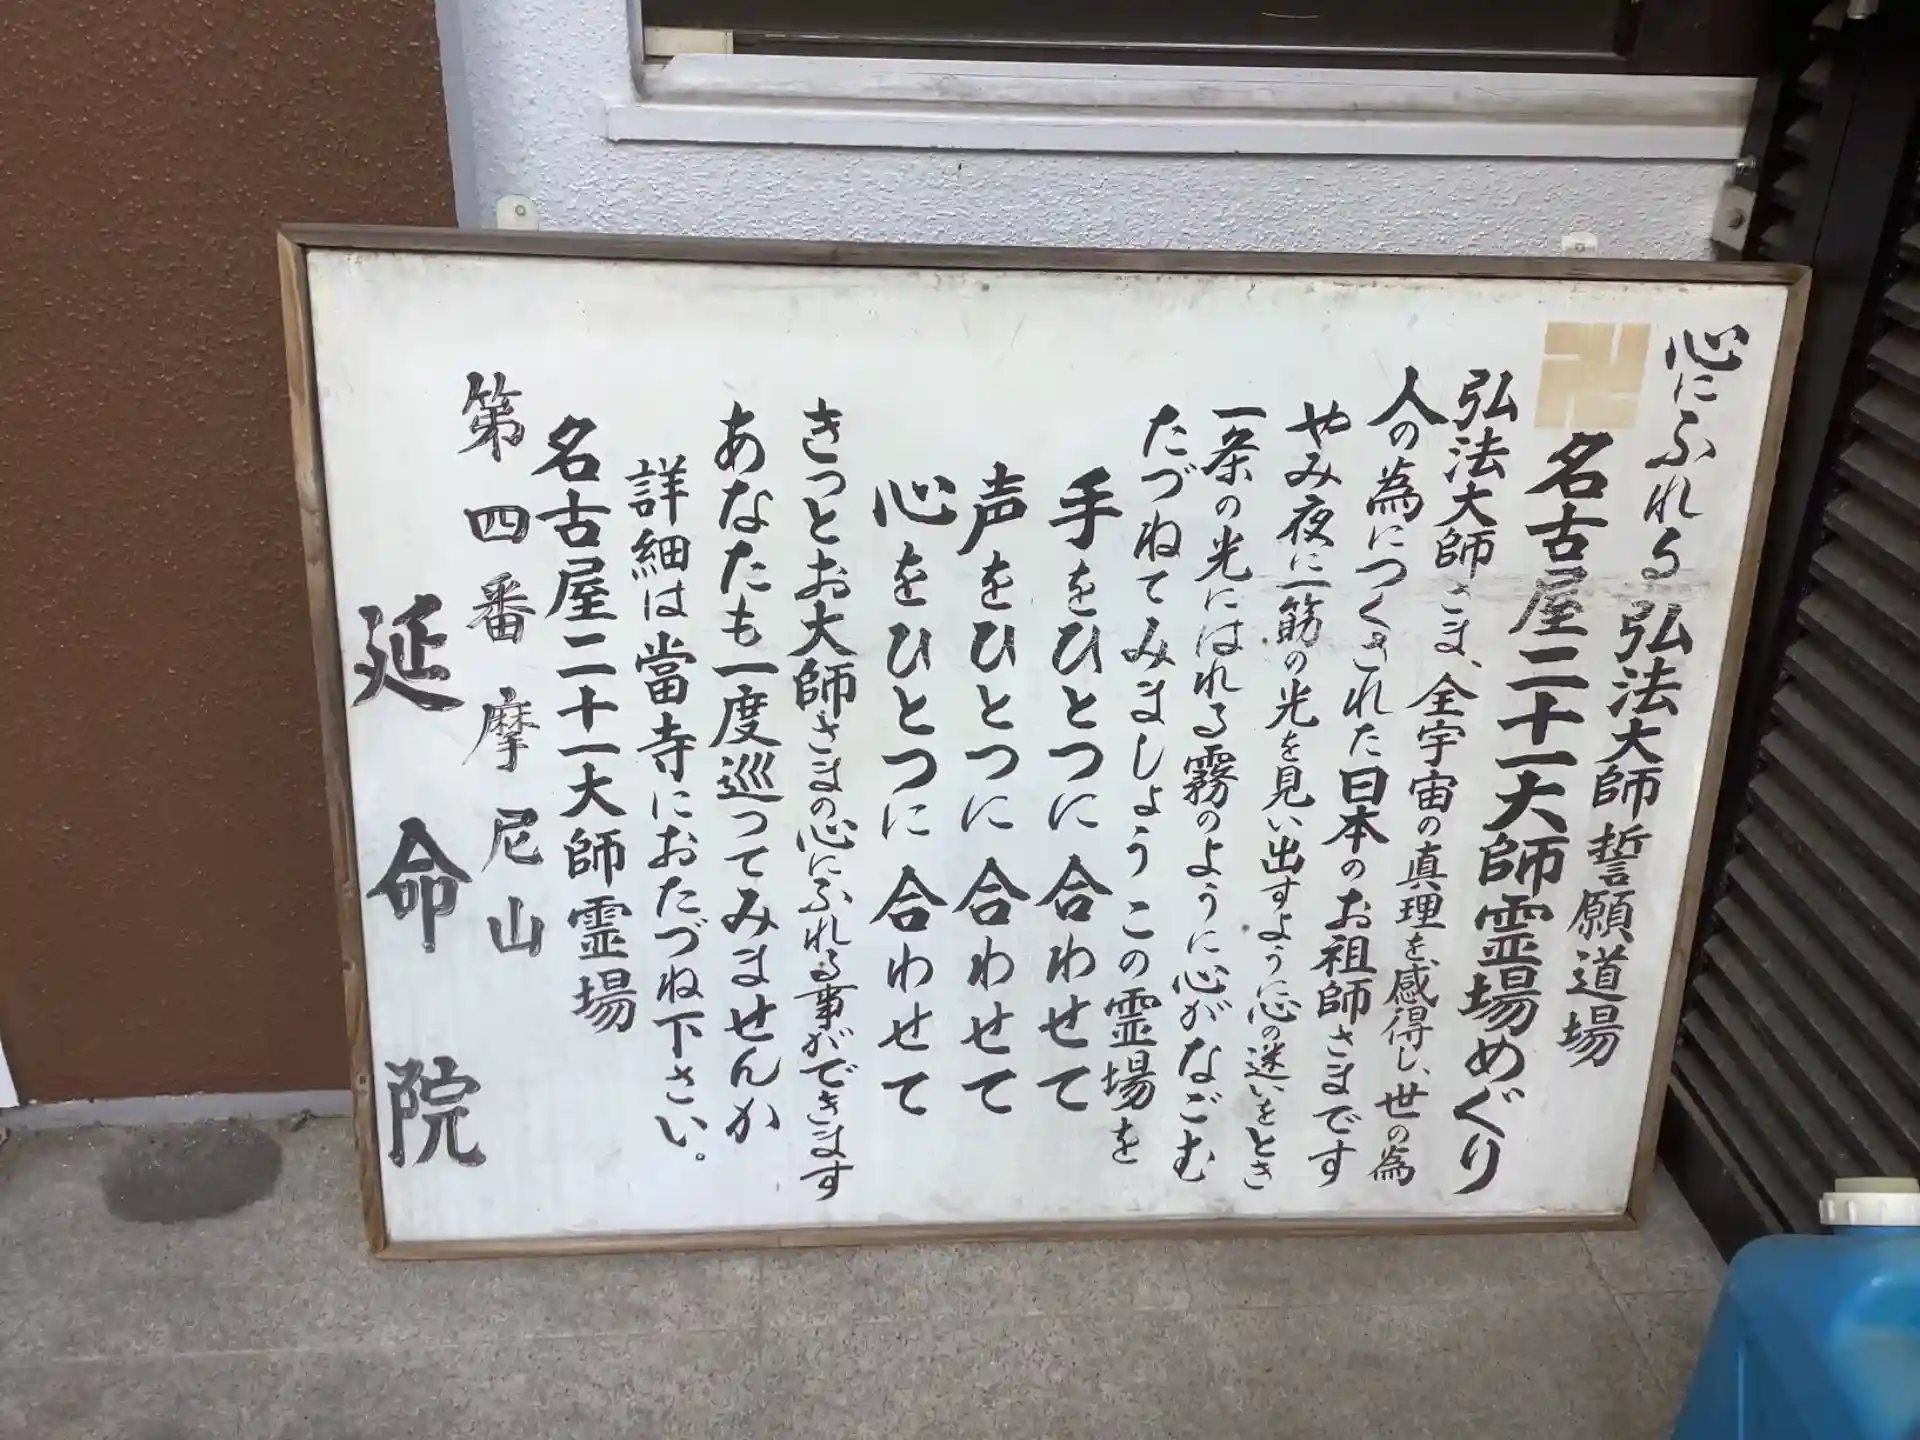 心にふれる弘法大師誓願道場
卍 名古屋二十一大師霊場めぐり
弘法大師さま、全宇宙の真理を感得し、世の為
人の為につくされた日本のお祖師さまです
やみ夜に一筋の光を見い出すように心の迷いをとき
一条の光にはれる霧のように心がなごむ
たづねてみましょうこの霊場を
手をひとつに合わせて
声をひとつに合わせて
心をひとつに合わせて
きっとお大師さまの心にふれる事ができます
あなたも一度巡ってみませんか
詳細は當寺におたづね下さい。
名古屋二十一大師霊場
第四番摩尼山
延命院